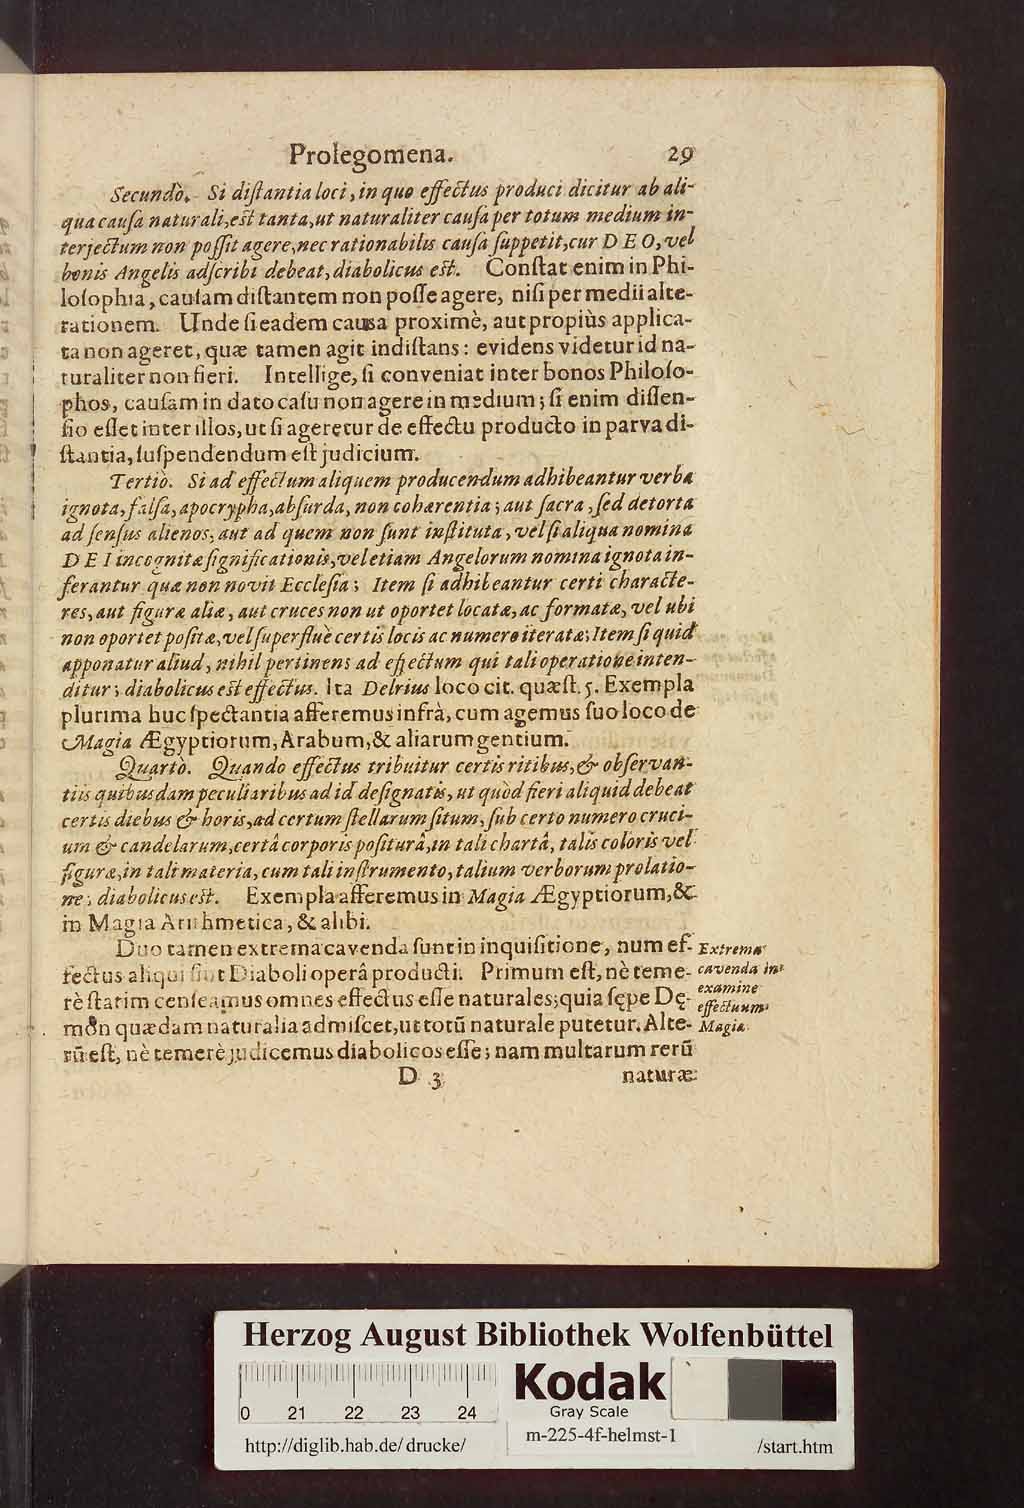 Prolegomena. 29
Secundò. Si diſtantia loci, in quo effectus produci dicitur ab ali-
qua cauſa naturali, eſt tanta, ut naturaliter cauſa per totum medium in-
terjectum non poſſit agere, nec rationabilis cauſa ſuppetit, cur DEO, vel
bonis Angelis adſcribi debeat, diabolicus eſt. Conſtat enim in Phi-
loſophia, cauſam diſtantem non poſſe agere, niſi per medii alte-
rationem. Unde ſi eadem causa proximè, aut propiùs applica-
ta non ageret, quæ tamen agit indiſtans: evidens videtur id na-
turaliter non fieri. Intellige, ſi conveniat inter bonos Philoſo-
phos, cauſam in dato caſu non agere in medium; ſi enim diſſen-
ſio eſſet inter illos, ut ſi ageretur de effectu producto in parva di-
ſtantia, ſuſpendendum eſt judicium.
Tertiò. Si ad effectum aliquem producendum adhibeantur verba
ignota, falſa, apocrypha, abſurda, non cohærentia; aut ſacra, ſed detorta
ad ſenſus alienos, aut ad quem non ſunt inſtituta, vel ſi aliqua nomina
DEI incognitæ ſignificationis, vel etiam Angelorum nomina ignota in-
ferantur quæ non novit Eccleſia; Item ſi adhibeantur certi characte-
res, aut figuræ aliæ, aut cruces non ut oportet locatæ, ac formatæ, vel ubi
non oportet poſitæ, vel ſuperfluè certis locis ac numero iteratæ; Item ſi quid
apponatur aliud, nihil pertinens ad effectum qui tali operatione inten-
ditur; diabolicus eſt effectus. Ita Delrius loco cit. quæſt. 5. Exempla
plurima huc ſpectantia afferemus infrà, cum agemus ſuo loco de
Magia Ægyptiorum, Arabum, & aliarum gentium.
Quartò. Quando effectus tribuitur certis ritibus, & obſervan-
tiis quibusdam peculiaribus ad id deſignatis, ut quòd fieri aliquid debeat
certis diebus & horis, ad certum ſtellarum ſitum, ſub certo numero cruci-
um & candelarum, certâ corporis poſiturâ, in tali chartâ, talis coloris vel
figuræ, in tali materia, cum tali inſtrumento, talium verborum prolatio-
ne; diabolicus eſt. Exempla afferemus in Magia Ægyptiorum, &
in Magia Arithmetica, & alibi.
Duo tamen extrema cavenda ſunt in inquiſitione, num ef-
fectus aliqui ſint Diaboli operâ producti. Primum eſt, nè teme-
rè ſtatim cenſeamus omnes effectus eſſe naturales; quia ſępe Dę-
mon quædam naturalia admiſcet, ut totū naturale putetur. Alte-
rū eſt, nè temerè judicemus diabolicos eſſe; nam multarum rerū
Extrema
cavenda in
examine
effectuum
Magia
D 3 naturæ
Herzog August Bibliothek Wolfenbüttel
Kodak
Gray Scale
0 21 22 23 24
http://diglib.hab.de/drucke/
m-225-4f-helmst-1
/start.htm